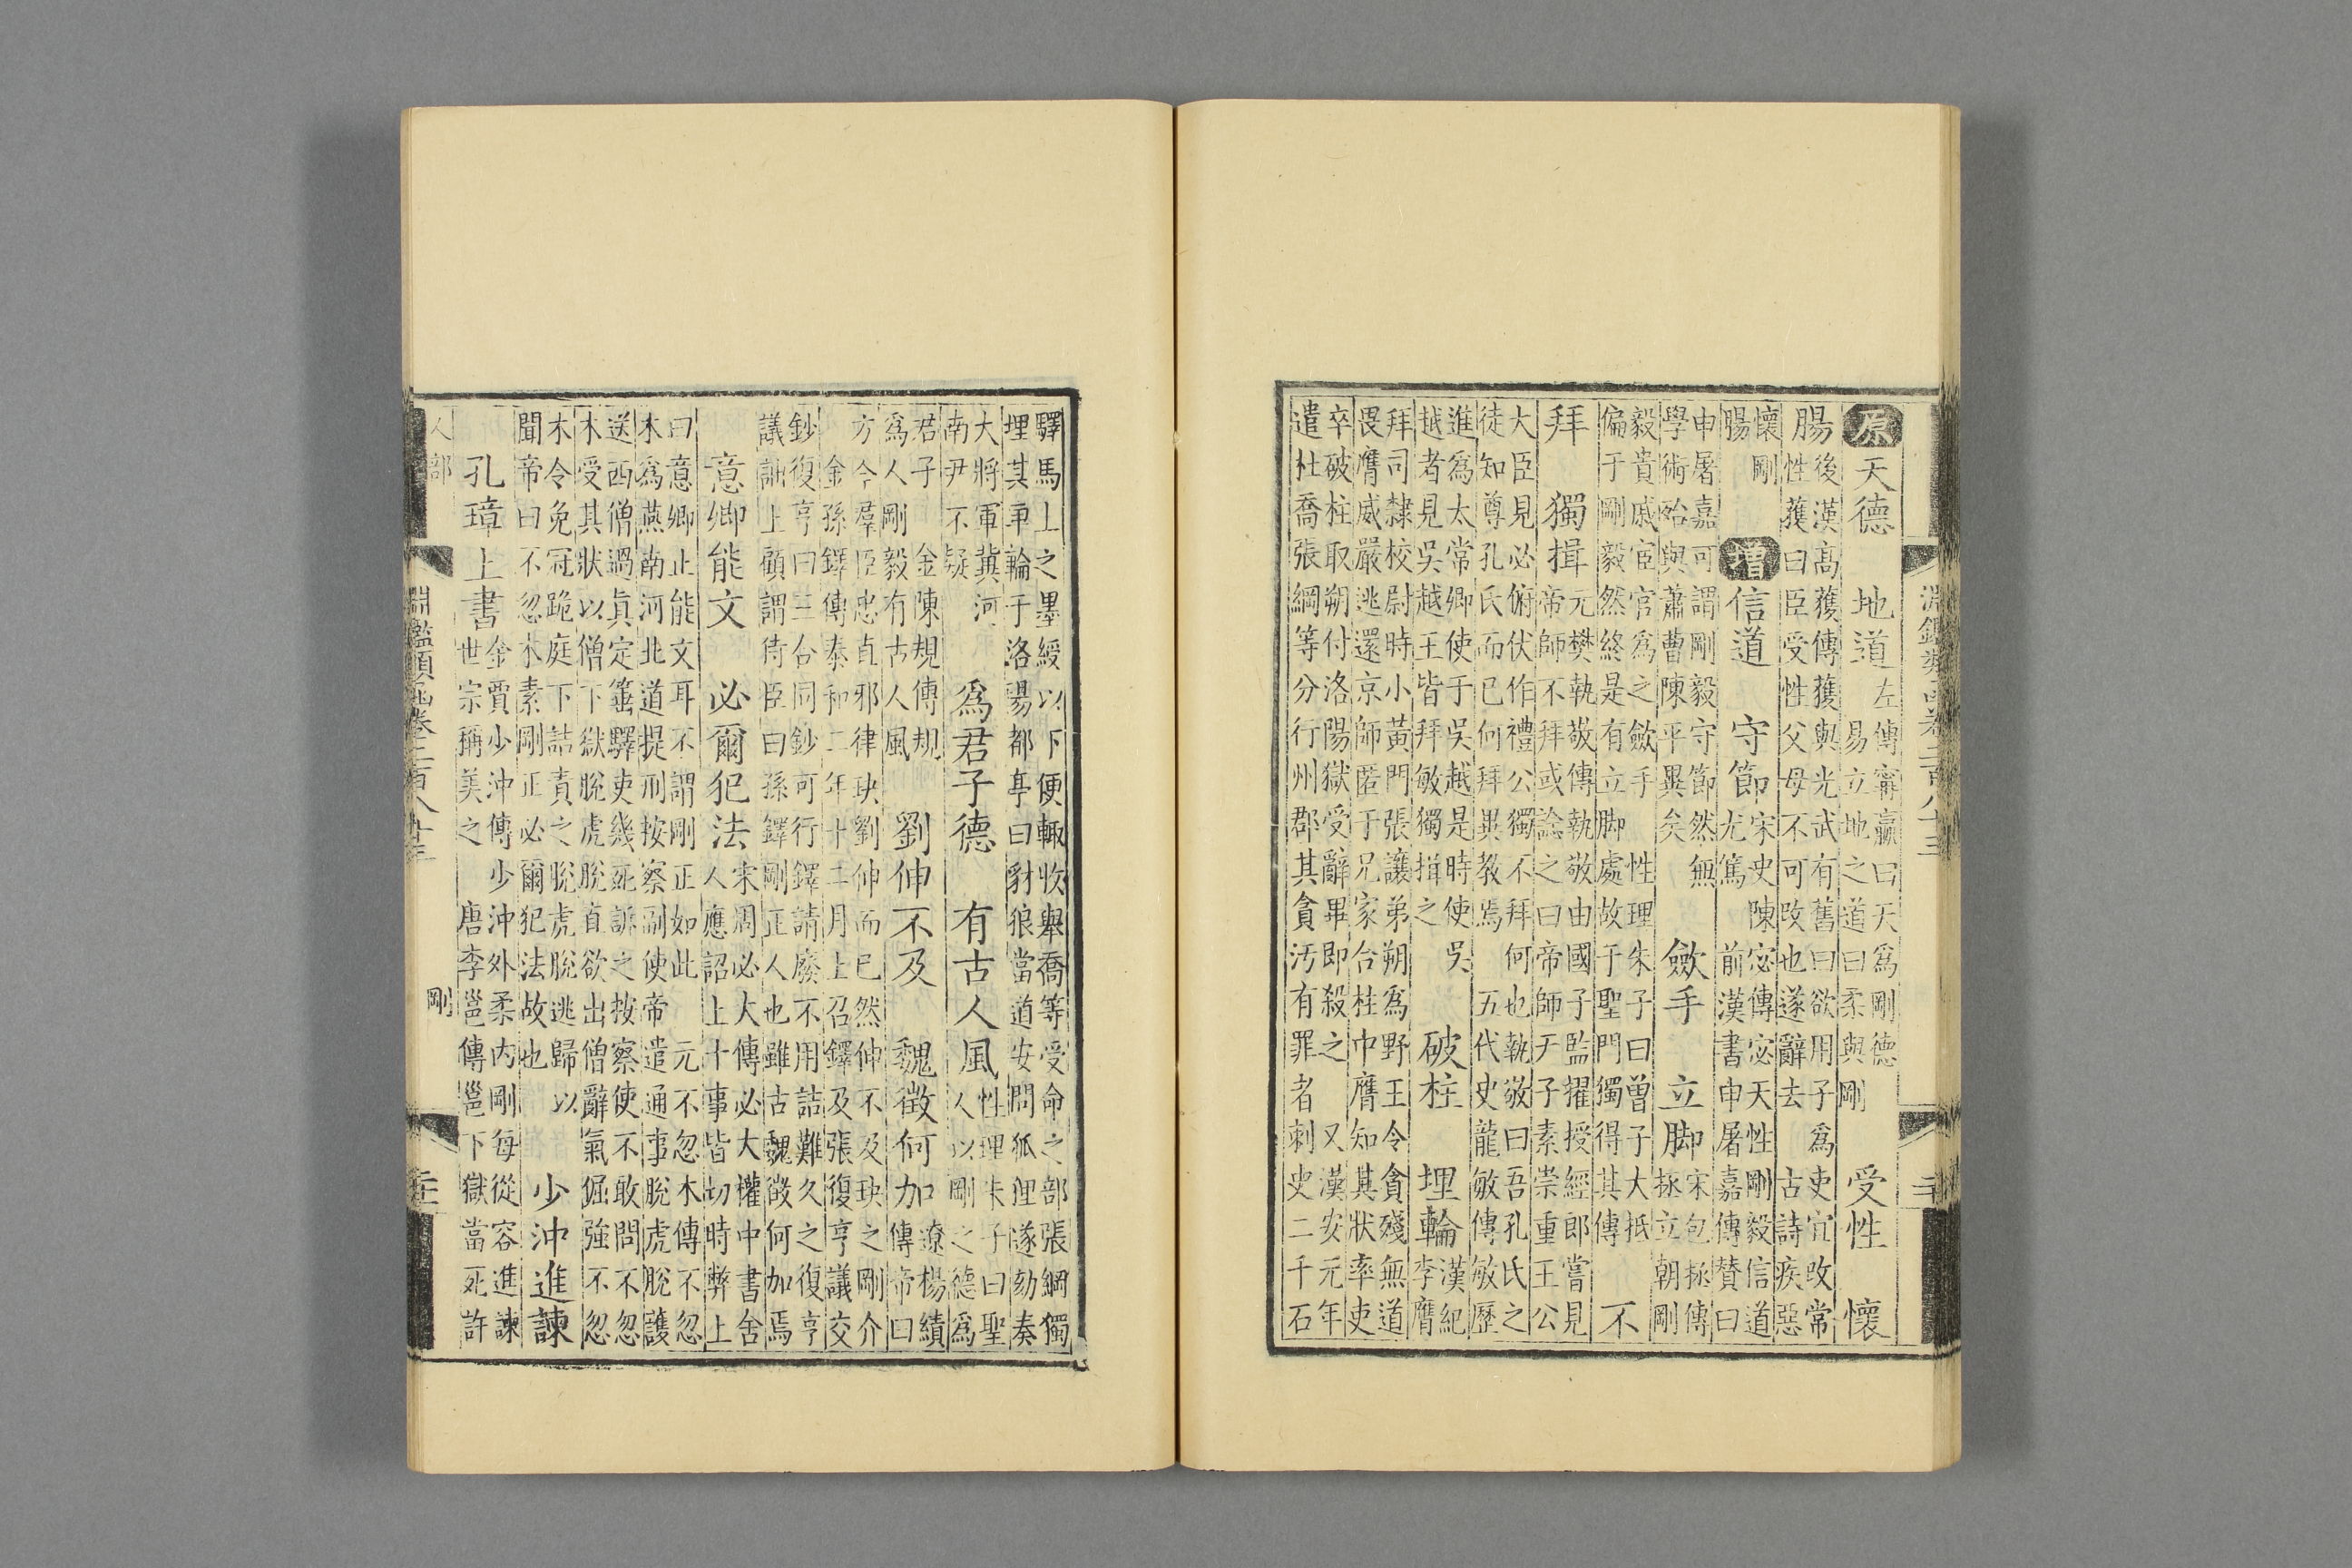 淵鑑類函卷二百八十三 二十
原 天德 地道 左傳甯嬴曰天爲剛德
易立地之道曰柔與剛 受性 懷
腸 後漢高獲傳獲與光武有舊曰欲用子爲吏宜改常
性獲曰臣受性父母不可改也遂辭去 古詩疾惡
懷剛
腸 增 信道 守節 宋史陳宓傳宓天性剛毅信道
尤篤 前漢書申屠嘉傳贊曰
申屠嘉可謂剛毅守節然無
學術殆與蕭曹陳平異矣 歛手 立脚 宋包拯傳
拯立朝剛
毅貴戚宦官爲之歛手 性理朱子曰曾子大抵
偏于剛毅然終是有立脚處故子聖門獨得其傳 不
拜 獨揖 元樊執敬傳執敬由國子監擢授經郎嘗見
帝師不拜或諗之曰帝師天子素崇重王公
大臣見必俯伏作禮公獨不拜何也執敬曰吾孔氏之
徒知尊孔氏而已何拜異教焉 五代史龍敏傳敏歷
進爲太常卿使于吳越是時使吳
越者見吳越王皆拜敏獨揖之 破柱 埋輪 漢紀
李膺
拜司隸校尉時小黃門張讓弟朔爲野王令貪殘無道
畏膺威嚴逃還京師匿于兄家合柱中膺知其狀率吏
卒破柱取朔付洛陽獄受辭畢即殺之 又漢安元年
遣杜喬張綱等分行州郡其貪汚有罪者刺史二千石
驛馬上之墨綬以下便輒收舉喬等受命之部張綱獨
埋其車輪于洛陽都亭曰豺狼當道安問狐狸遂劾奏
大將軍冀河
南尹不疑 爲君子德 有古人風 性理朱子曰聖
人以剛之德爲
君子 金陳規傳規
爲人剛毅有古人風 劉伸不及 魏徵何加 遼楊績
傳帝曰
方今羣臣忠直邪律玦劉伸而已然伸不及玦之剛介
金孫鐸傳泰和二年十二月上召鐸及張復亨議交
鈔復亨曰三合同鈔可行鐸請廢不用詰難久之復亨
議詘上顧謂待臣曰孫鐸剛正人也雖古魏徵何加焉
意卿能文 必爾犯法 宋周必大傳必大權中書舍
人應詔上十事皆切時弊上
曰意卿止能文耳不謂剛正如此 元不忽木傳不忽
木爲燕南河北道提刑按察副使帝遣通事脫虎脫護
送西僧過眞定箠驛吏幾死訴之按察使不敢問不忽
木受其狀以僧下獄脫虎脫直欲出僧辭氣倔強不忽
木令免冠跪庭下詰責之脫虎脫逃歸以
聞帝曰不忽木素剛正必爾犯法故也 少沖進諫
孔璋上書 金賈少沖傳少沖外柔內剛每從容進諫
世宗稱美之 唐李邕傳邕下獄當死許
人部 剛
淵鑑類函卷二百八十三